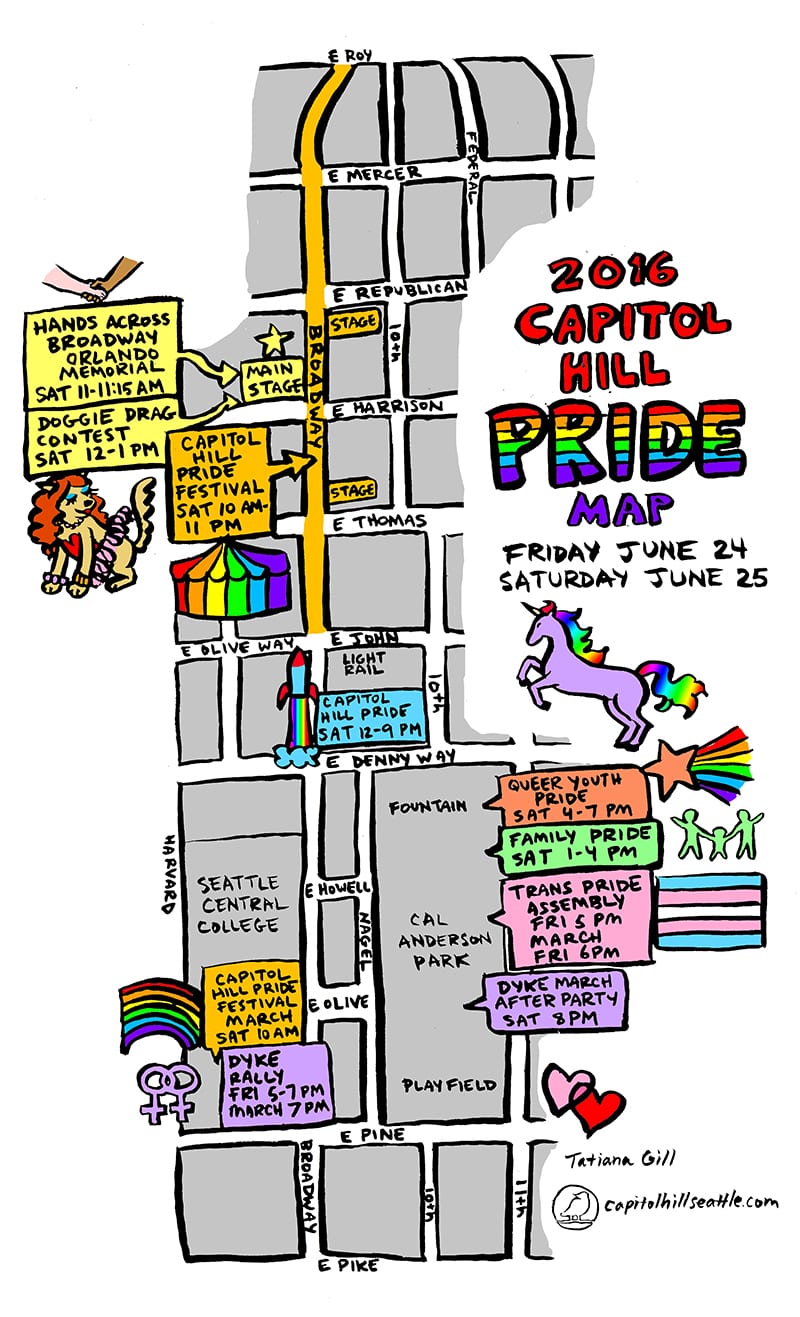 E ROY
FEDERAL
E MERCER
E REPUBLICAN
2016
CAPITOL
HILL
PRIDE
MAP
FRIDAY JUNE 24
SATURDAY JUNE 25
HANDS ACROSS
BROADWAY
ORLANDO
MEMORIAL
SAT 11-11:15 AM
DOGGIE DRAG
CONTEST
SAT 12-1 PM
MAIN
STAGE
STAGE
BROADWAY
10th
E HARRISON
CAPITOL
HILL
PRIDE
FESTIVAL
SAT 10 AM-
11 PM
STAGE
E THOMAS
E OLIVE WAY
E JOHN
LIGHT
RAIL
10th
CAPITOL
HILL PRIDE
SAT 12-9 PM
E DENNY WAY
FOUNTAIN
QUEER YOUTH
PRIDE
SAT 4-7 PM
FAMILY PRIDE
SAT 1-4 PM
HARVARD
SEATTLE
CENTRAL
COLLEGE
E HOWELL
NAGEL
CAL
ANDERSON
PARK
TRANS PRIDE
ASSEMBLY
FRI 5 PM
MARCH
FRI 6PM
CAPITOL
HILL PRIDE
FESTIVAL
MARCH
SAT 10 AM
E OLIVE
DYKE MARCH
AFTER PARTY
SAT 8PM
DYKE
RALLY
FRI 5-7 PM
MARCH 7 PM
PLAYFIELD
E PINE
BROADWAY
10th
11th
E PIKE
Tatiana Gill
capitolhillseattle.com